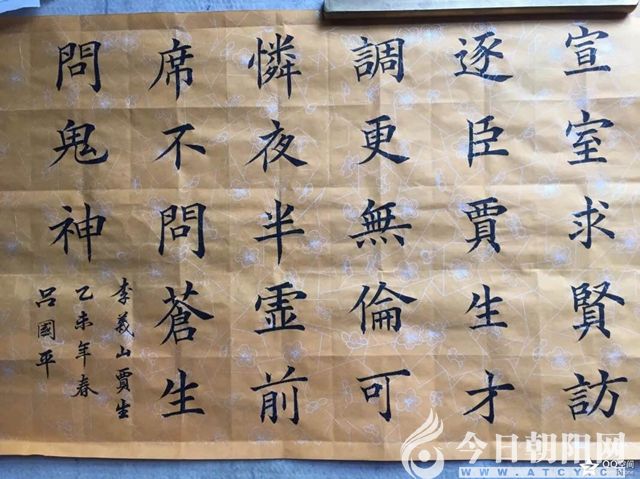 宣室求賢訪
逐臣賈生才
調更無倫可
憐夜半虚前
席不問蒼生
問鬼神
李義山賈生
乙未年春
呂國平
今日朝阳网